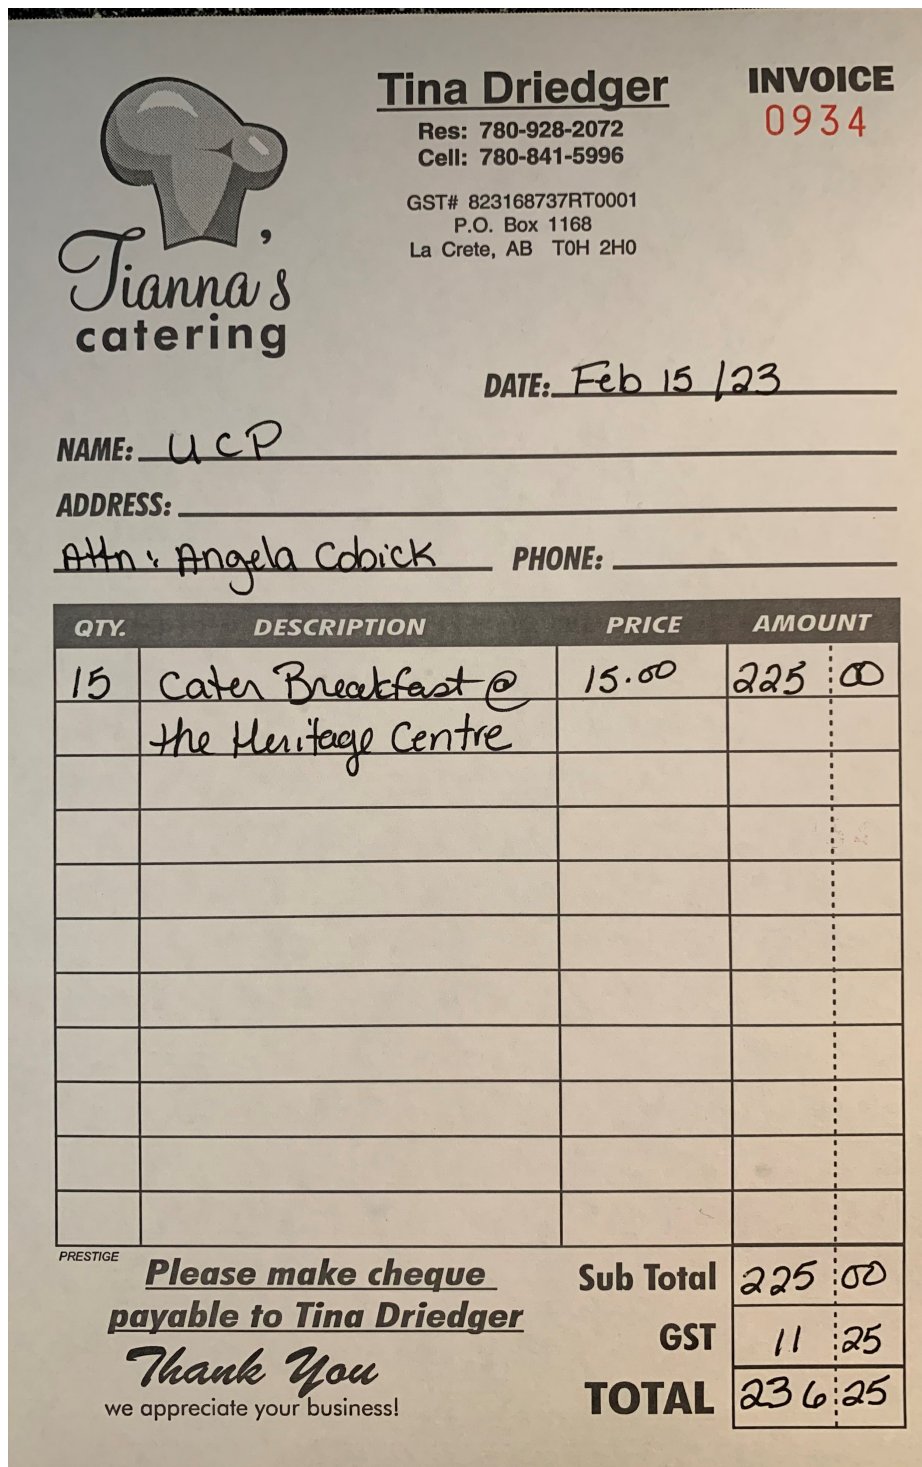 Tina Driedger
Res: 780-928-2072
Cell: 780-841-5996
GST# 823168737RT0001
P.O. Box 1168
La Crete, AB T0H 2H0
INVOICE
0934
Tianna's
catering
DATE: Feb 15 /23
NAME: UCP
ADDRESS:
Attn: Angela Cobick PHONE:
QTY. DESCRIPTION PRICE AMOUNT
15 Cater Breakfast @ 15.00 225 00
the Heritage Centre
PRESTIGE
Please make cheque
payable to Tina Driedger
Thank You
we appreciate your business!
Sub Total 225 00
GST 11 25
TOTAL 236 25